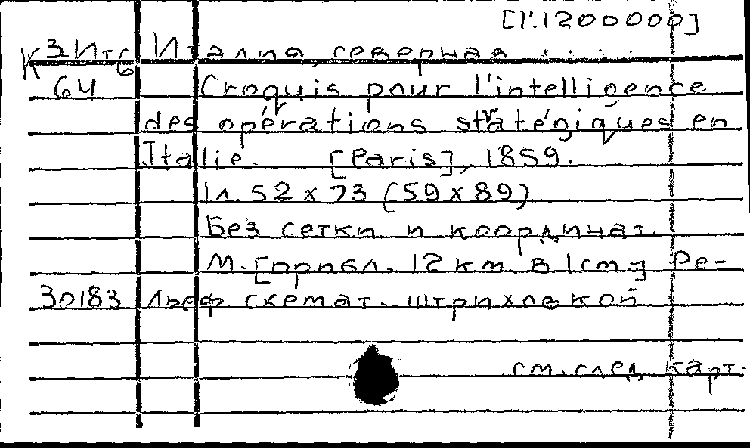 [1:1200000]
К 3Ит6 Италия, северная
64 Croquis pour l'intelligence
des opérations stratégiques en
Italie. [Paris], 1859.
1л. 52 x 73 (59 x 89)
Без сетки и координат.
М. [прибл. 12 км в 1 cm]. Ре-
30183 льеф схемат. штриховкой
см. след. карт.